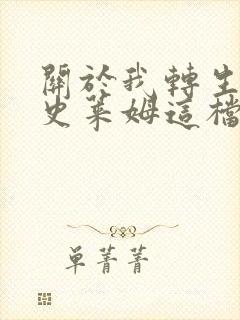 關於我轉生
史萊姆這檔
单菁菁